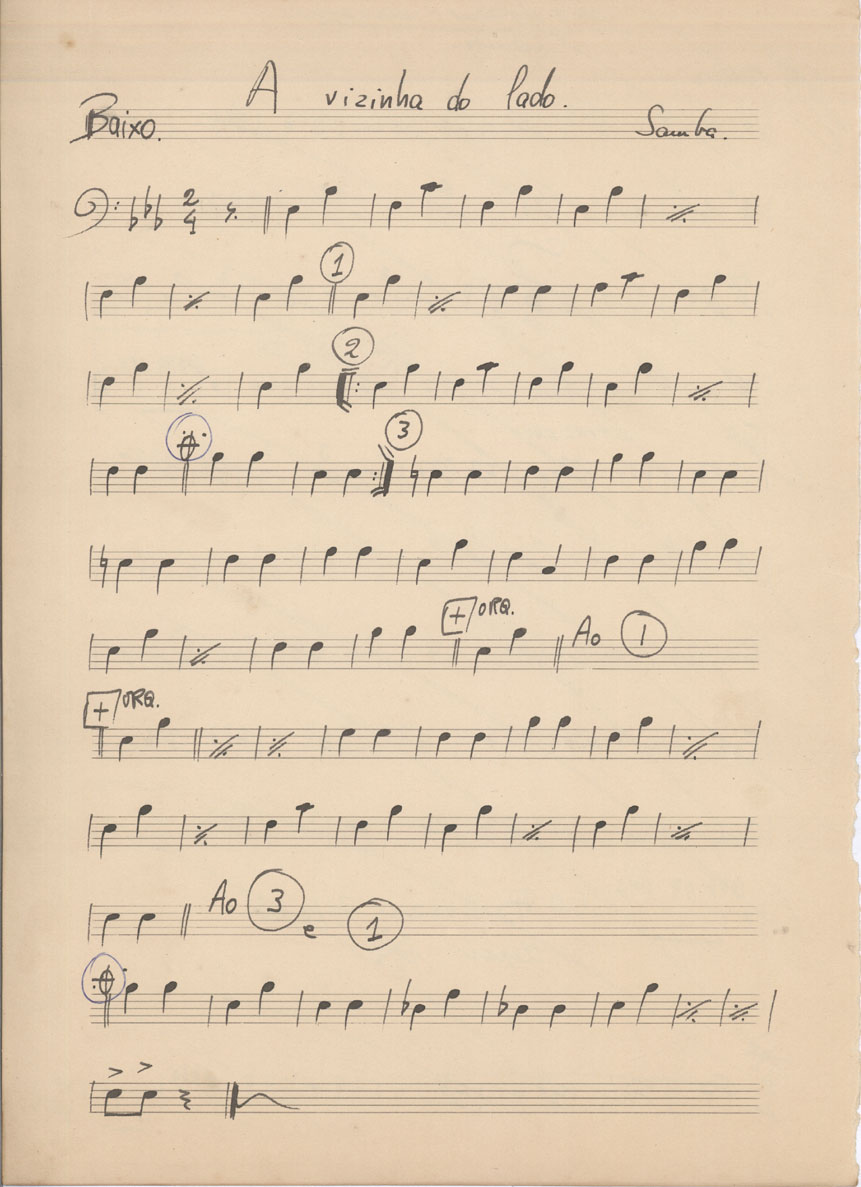 A vizinha do lado.
Baixo. Samba.
2
4
1
2
3
+ ORQ. Ao 1
+ ORQ.
Ao 3 e 1